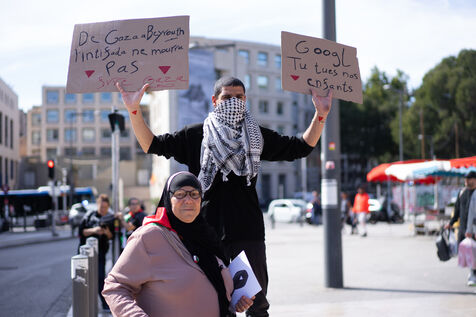 De GAZA à Beyrouth
l'intifada ne mourra
pas
Vive Gaza
GOOGL
Tu tues nos
enfants